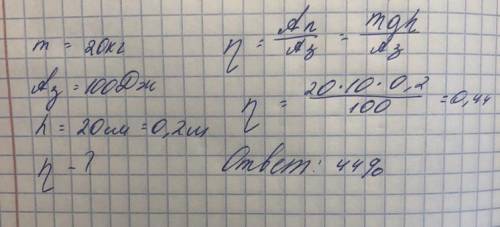 m = 20кг
Aз = 100Дж
h = 20см = 0,2м
η - ?
η = Aп/Aз = mgh/Aз
η = 20·10·0,2/100 = 0,44
Ответ: 44%